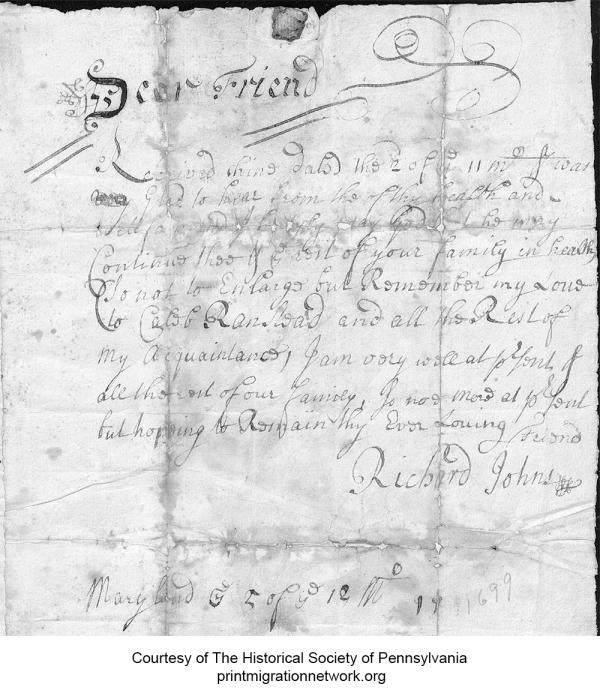 Dear Friend
Received thine dated the 2 of ye 11 mo I was
Glad to hear from thee of thy health and
well
Continue thee & ye rest of your family in health
So not to Enlarge but Remember my Love
to Caleb Ranstead and all the Rest of
my acquaintance, I am very well at prsent &
all the rest of our family, So noe more at prsent
but hopeing to Remain thy Ever Loving friend
Richard Johns
Maryland ye 2 of ye 12 Mo 1699
Courtesy of The Historical Society of Pennsylvania
printmigrationnetwork.org